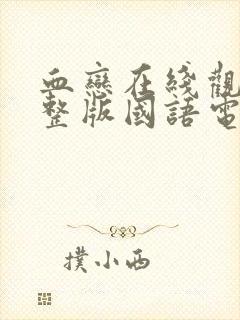 血戀在綫觀
整版國語電
撲小西